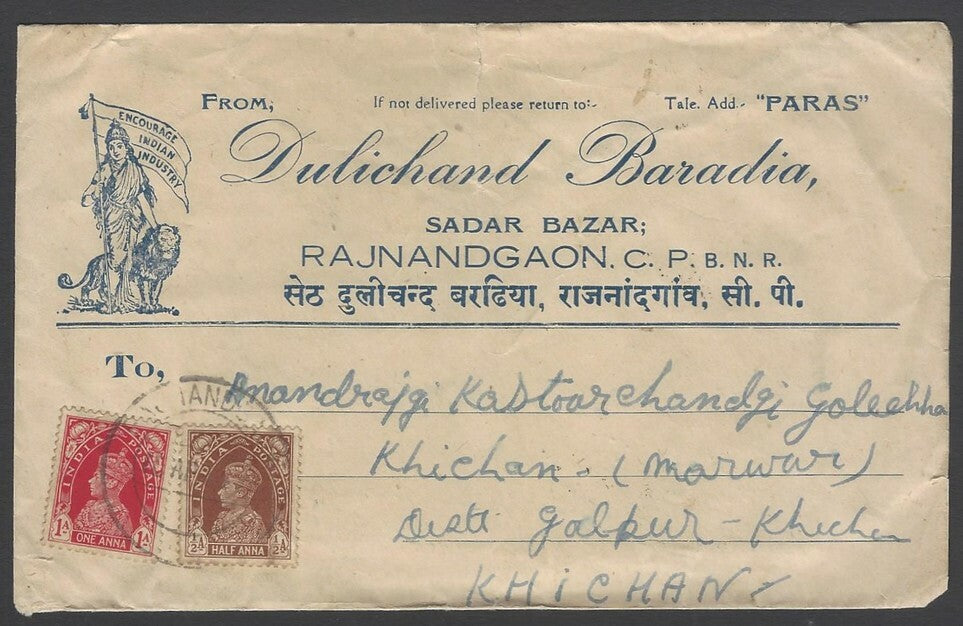 ENCOURAGE
INDIAN
INDUSTRY
FROM, If not delivered please return to:- Tale. Add.- "PARAS"
Dulichand Baradia,
SADAR BAZAR;
RAJNANDGAON. C. P. B. N. R.
सेठ दुलीचन्द बरढिया, राजनांदगांव, सी. पी.
To,
Anandrajgi Kastoorchandgi Golechha
Khichan - (Marwar)
Distt -
KHICHAN -
INDIA POSTAGE
1A ONE ANNA 1A
INDIA POSTAGE
½A HALF ANNA ½A